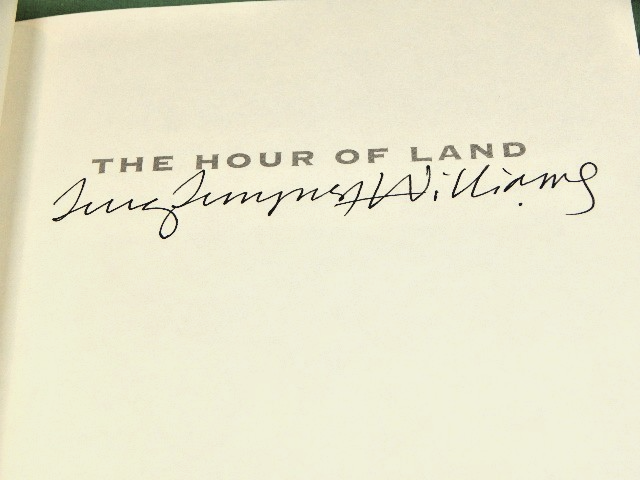 THE HOUR OF LAND
Terry Tempest Williams